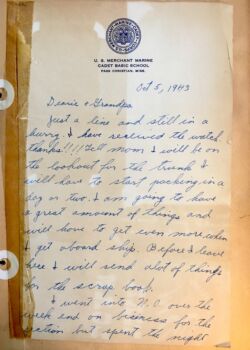 U. S. MERCHANT MARINE
CADET BASIC SCHOOL
PASS CHRISTIAN, MISS.
Oct 5, 1943
Dearie & Grandpa
Just a line and still in a
hurry. I have received the watch
thanks!!!! Tell Mom I will be on
the lookout for the trunk &
will have to start packing in a
day or two. I am going to have
a great amount of things and
will have to get even more when
I get aboard ship. Before I leave
here I will send alot of things
for the scrap book.
I went into N.O. over the
week end on business for the
section but spent the night